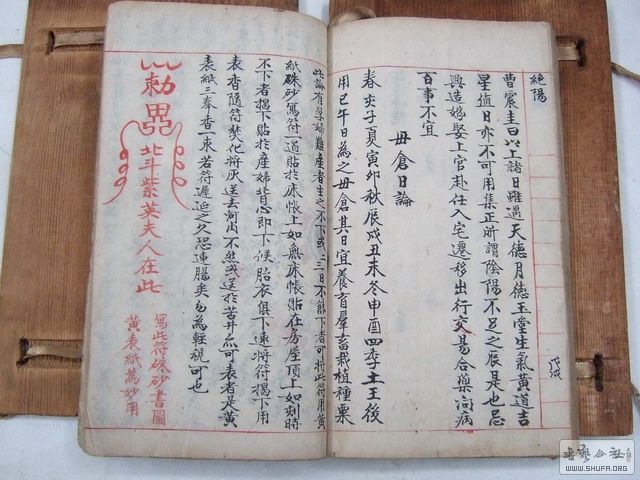 絕陽
曹震圭曰以上諸日雖遇天德月德玉堂生氣黃道吉
星值日亦不可用集正所謂陰陽不足之辰是也忌
興造嫁娶上官赴任入宅遷移出行交易合藥問病
百事不宜
母倉日論
春亥子夏寅卯秋辰戌丑未冬申酉四季土王後
用巳午日為之母倉其日宜養育羣畜栽植種粟
此論有孕婦難產者生之不下或二三日不能下者可將此符用黃
紙硃砂寫符一道貼於床帳上如無床帳貼在房屋頂上如刻時
不下者揭下貼於產婦背心即下候胎衣俱下速將符揭下用
表香隨符焚化將灰送去河內不然或送於苦井亦可表者是黃
表紙三奉香一束若符遲延之久恐連腸矣勿為輕視可也
勅
北斗紫英夫人在此
寫此符硃砂書圖
黃表紙為妙用
WWW.SHUFA.ORG